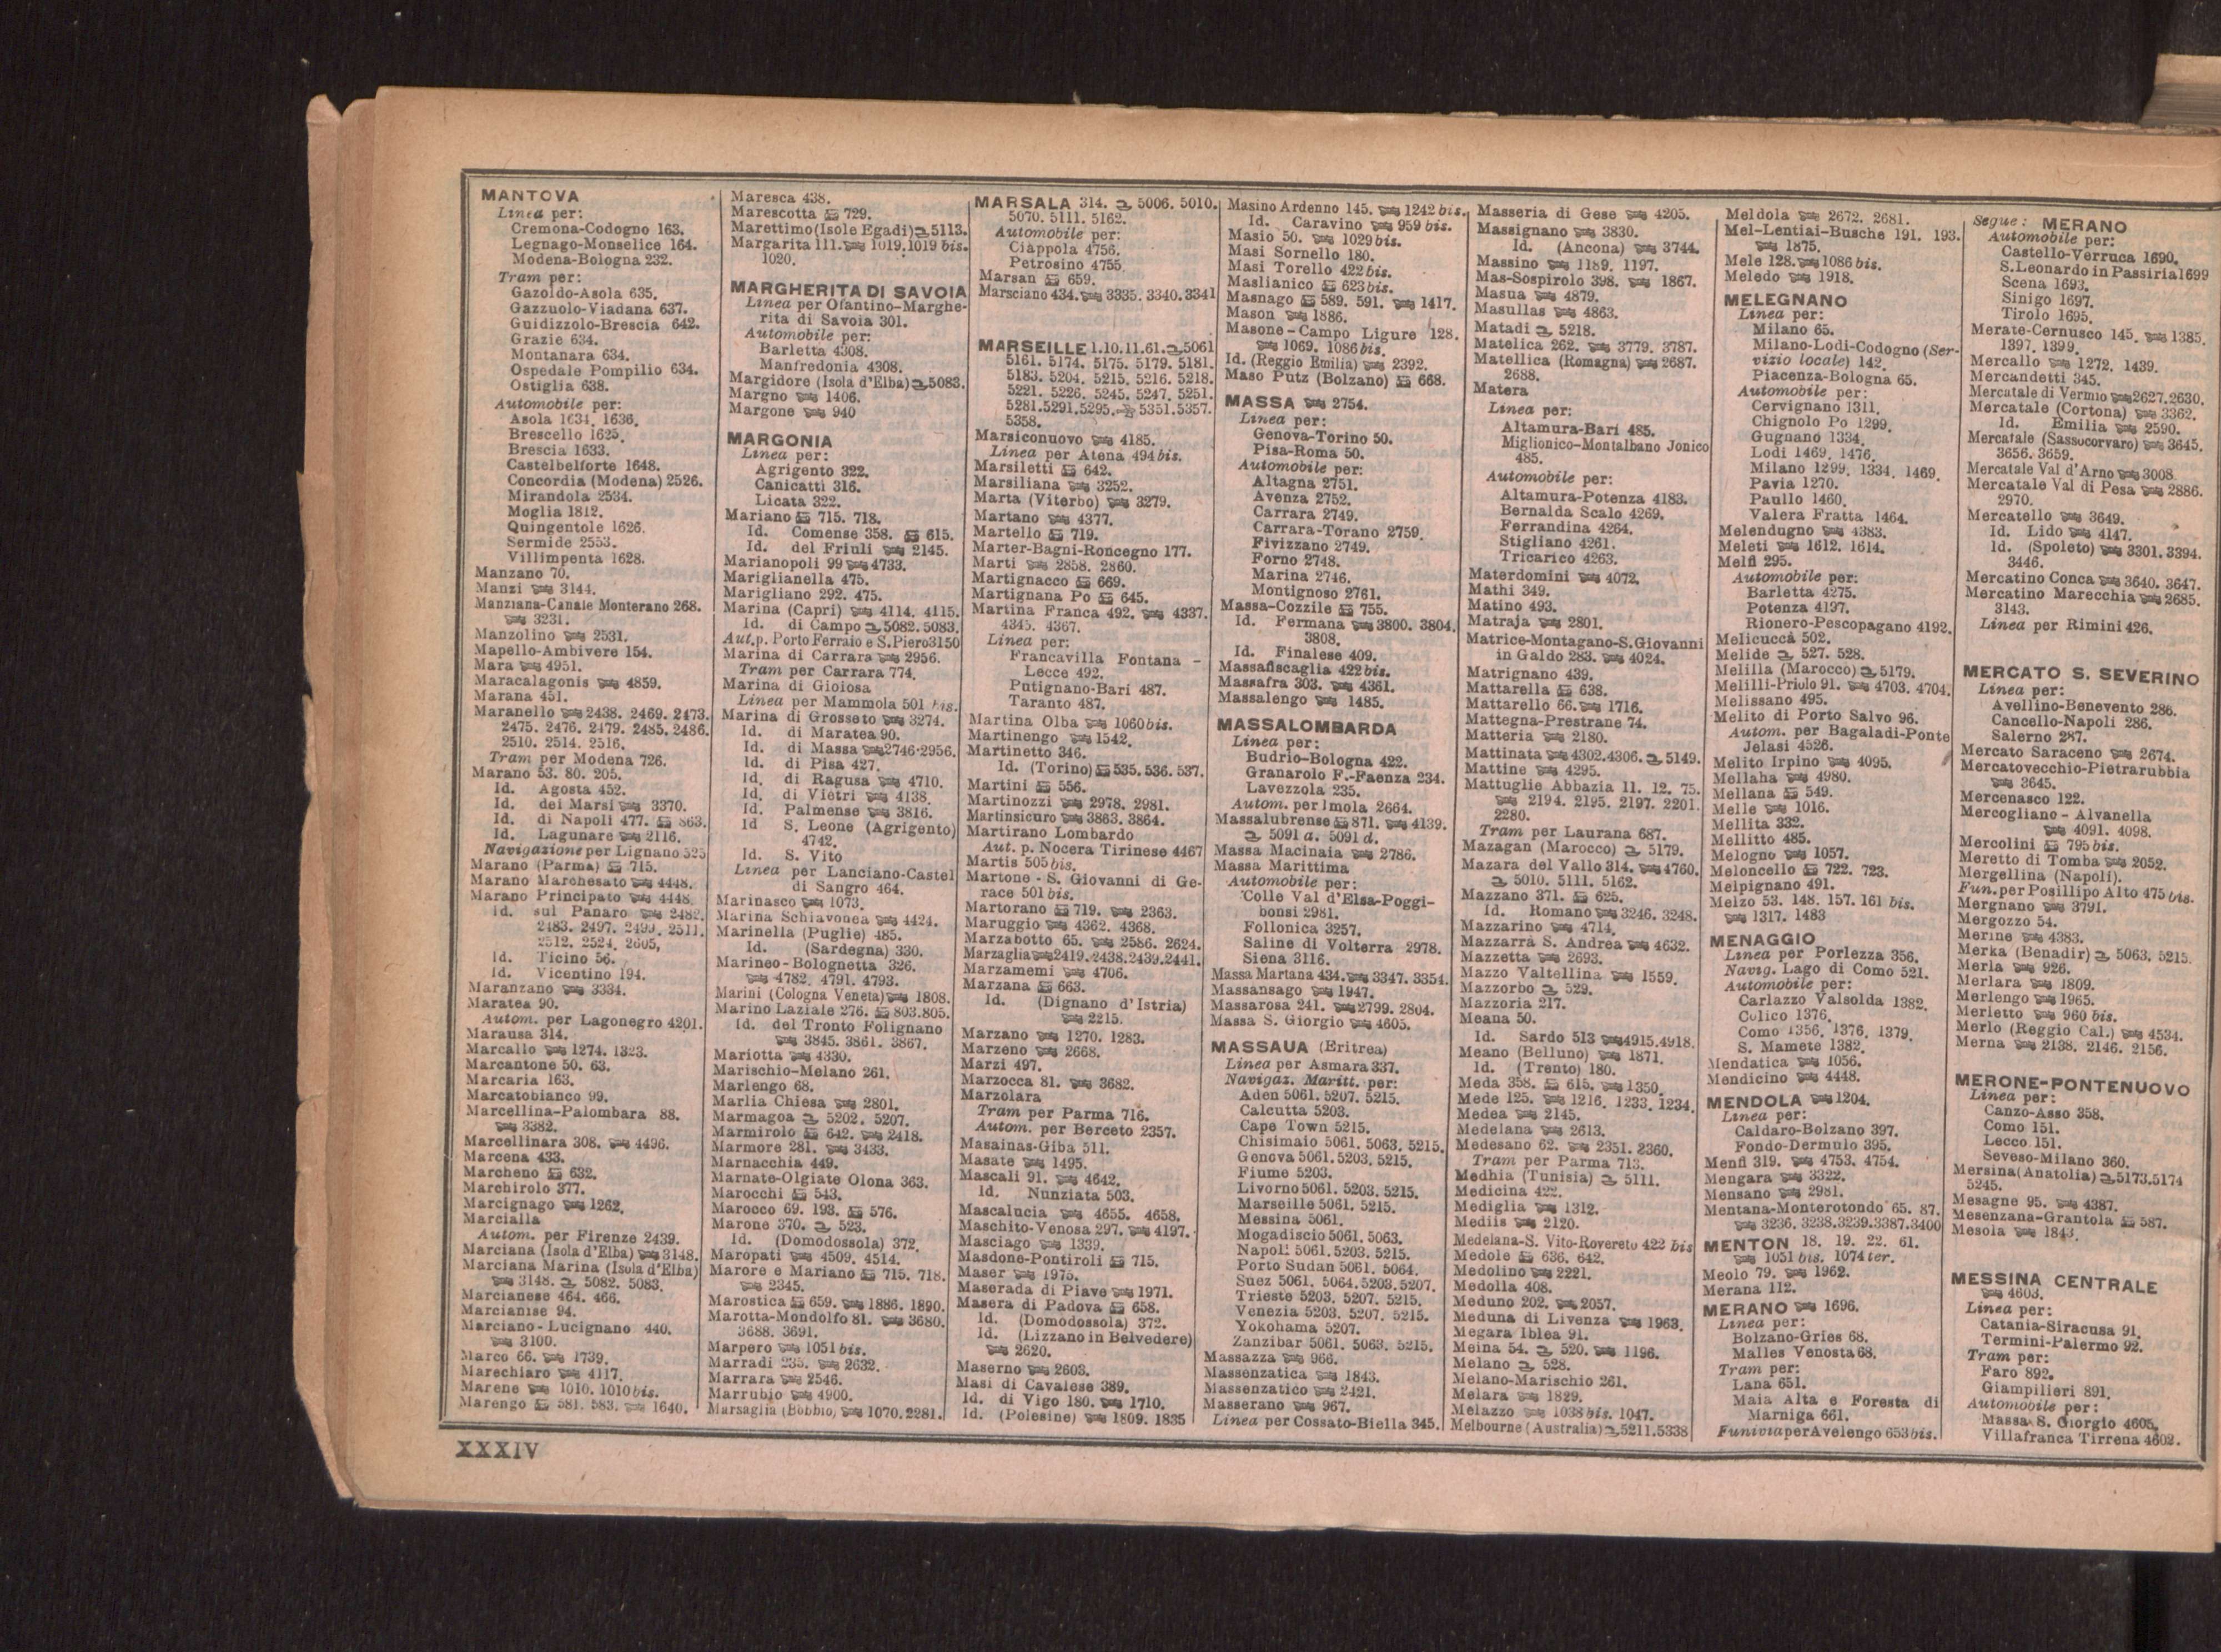 MANTOVA
Linea per:
Cremona-Codogno 163.
Legnago-Monselice 164.
Modena-Bologna 232.
Tram per:
Gazoldo-Asola 635.
Gazzuolo-Viadana 637.
Guidizzolo-Brescia 642.
Grazie 634.
Montanara 634.
Ospedale Pompilio 634.
Ostiglia 638.
Automobile per:
Asola 1634. 1636.
Brescello 1625.
Brescia 1633.
Castelbelforte 1648.
Concordia (Modena) 2526.
Mirandola 2534.
Moglia 1812.
Quingentole 1626.
Sermide 2553.
Villimpenta 1628.
Manzano 70.
Manzi 3144.
Manziana-Canale Monterano 268.
3231.
Manzolino 2531.
Mapello-Ambivere 154.
Mara 4951.
Maracalagonis 4859.
Marana 451.
Maranello 2438. 2469. 2473.
2475. 2476. 2479. 2485. 2486.
2510. 2514. 2516.
Tram per Modena 726.
Marano 53. 80. 205.
Id. Agosta 452.
Id. dei Marsi 3370.
Id. di Napoli 477. 863.
Id. Lagunare 2116.
Navigazione per Lignano 525
Marano (Parma) 715.
Marano Marchesato 4448.
Marano Principato 4448.
Id. sul Panaro 2482.
2483. 2497. 2499. 2511.
2512. 2524. 2605.
Id. Ticino 56.
Id. Vicentino 194.
Maranzano 3334.
Maratea 90.
Autom. per Lagonegro 4201.
Marausa 314.
Marcallo 1274. 1323.
Marcantone 50. 63.
Marcaria 163.
Marcatobianco 99.
Marcellina-Palombara 88.
3382.
Marcellinara 308. 4496.
Marcena 433.
Marcheno 632.
Marchirolo 377.
Marcignago 1262.
Marcialla
Autom. per Firenze 2439.
Marciana (Isola d'Elba) 3148.
Marciana Marina (Isola d'Elba)
3148. 5082. 5083.
Marcianese 464. 466.
Marcianise 94.
Marciano-Lucignano 440.
3100.
Marco 66. 1739.
Marechiaro 4117.
Marene 1010. 1010 bis.
Marengo 581. 583. 1640.
Maresca 438.
Marescotta 729.
Marettimo (Isole Egadi) 5113.
Margarita 111. 1019. 1019 bis.
1020.
MARGHERITA DI SAVOIA
Linea per Ofantino-Marghe-
rita di Savoia 301.
Automobile per:
Barletta 4308.
Manfredonia 4308.
Margidore (Isola d'Elba) 5083.
Margno 1406.
Margone 940
MARGONIA
Linea per:
Agrigento 322.
Canicatti 316.
Licata 322.
Mariano 715. 718.
Id. Comense 358. 615.
Id. del Friuli 2145.
Marianopoli 99 4733.
Mariglianella 475.
Marigliano 292. 475.
Marina (Capri) 4114. 4115.
Id. di Campo 5082. 5083.
Aut. p. Porto Ferraio e S.Piero 3150
Marina di Carrara 2956.
Tram per Carrara 774.
Marina di Gioiosa
Linea per Mammola 501 bis.
Marina di Grosseto 3274.
Id. di Maratea 90.
Id. di Massa 2746-2956.
Id. di Pisa 427.
Id. di Ragusa 4710.
Id. di Vietri 4138.
Id. Palmense 3816.
Id S. Leone (Agrigento)
4742.
Id. S. Vito
Linea per Lanciano-Castel
di Sangro 464.
Marinasco 1073.
Marina Schiavonea 4424.
Marinella (Puglie) 485.
Id. (Sardegna) 330.
Marineo-Bolognetta 326.
4782. 4791. 4793.
Marini (Cologna Veneta) 1808.
Marino Laziale 276. 803.805.
Id. del Tronto Folignano
3845. 3861. 3867.
Mariotta 4330.
Marischio-Melano 261.
Marlengo 68.
Marlia Chiesa 2801.
Marmagoa 5202. 5207.
Marmirolo 642. 2418.
Marmore 281. 3433.
Marnacchia 449.
Marnate-Olgiate Olona 363.
Marocchi 543.
Marocco 69. 193. 576.
Marone 370. 523.
Id. (Domodossola) 372.
Maropati 4509. 4514.
Marore e Mariano 715. 718.
2345.
Marostica 659. 1886. 1890.
Marotta-Mondolfo 81. 3680.
3688. 3691.
Marpero 1051 bis.
Marradi 235. 2632.
Marrara 2546.
Marrubio 4900.
Marsaglia (Bobbio) 1070. 2281.
MARSALA 314. 5006. 5010.
5070. 5111. 5162.
Automobile per:
Ciappola 4756.
Petrosino 4755.
Marsan 659.
Marsciano 434. 3335. 3340. 3341
MARSEILLE 1.10.11.61. 5061
5161. 5174. 5175. 5179. 5181.
5183. 5204. 5215. 5216. 5218.
5221. 5226. 5245. 5247. 5251.
5281. 5291. 5295. 5351. 5357.
5358.
Marsiconuovo 4185.
Linea per Atena 494 bis.
Marsiletti 642.
Marsiliana 3252.
Marta (Viterbo) 3279.
Martano 4377.
Martello 719.
Marter-Bagni-Roncegno 177.
Marti 2858. 2860.
Martignacco 669.
Martignana Po 645.
Martina Franca 492. 4337.
4345. 4367.
Linea per:
Francavilla Fontana -
Lecce 492.
Putignano-Bari 487.
Taranto 487.
Martina Olba 1060 bis.
Martinengo 1542.
Martinetto 346.
Id. (Torino) 535. 536. 537.
Martini 556.
Martinozzi 2978. 2981.
Martinsicuro 3863. 3864.
Martirano Lombardo
Aut. p. Nocera Tirinese 4467
Martis 505 bis.
Martone - S. Giovanni di Ge-
race 501 bis.
Martorano 719. 2363.
Maruggio 4362. 4368.
Marzabotto 65. 2586. 2624.
Marzaglia 2419. 2438. 2439. 2441.
Marzamemi 4706.
Marzana 663.
Id. (Dignano d'Istria)
2215.
Marzano 1270. 1283.
Marzeno 2668.
Marzi 497.
Marzocca 81. 3682.
Marzolara
Tram per Parma 716.
Autom. per Berceto 2357.
Masainas-Giba 511.
Masate 1495.
Mascali 91. 4642.
Id. Nunziata 503.
Mascalucia 4655. 4658.
Maschito-Venosa 297. 4197.
Masciago 1339.
Masdone-Pontiroli 715.
Maser 1975.
Maserada di Piave 1971.
Masera di Padova 658.
Id. (Domodossola) 372.
Id. (Lizzano in Belvedere)
2620.
Maserno 2603.
Masi di Cavalese 389.
Id. di Vigo 180. 1710.
Id. (Polesine) 1809. 1835
Masino Ardenno 145. 1242 bis.
Id. Caravino 959 bis.
Masio 50. 1029 bis.
Masi Sornello 180.
Masi Torello 422 bis.
Maslianico 623 bis.
Masnago 589. 591. 1417.
Mason 1886.
Masone-Campo Ligure 128.
1069. 1086 bis.
Id. (Reggio Emilia) 2392.
Maso Putz (Bolzano) 668.
MASSA 2754.
Linea per:
Genova-Torino 50.
Pisa-Roma 50.
Automobile per:
Altagna 2751.
Avenza 2752.
Carrara 2749.
Carrara-Torano 2759.
Fivizzano 2749.
Forno 2748.
Marina 2746.
Montignoso 2761.
Massa-Cozzile 755.
Id. Fermana 3800. 3804.
3808.
Id. Finalese 409.
Massafiscaglia 422 bis.
Massafra 303. 4361.
Massalengo 1485.
MASSALOMBARDA
Linea per:
Budrio-Bologna 422.
Granarolo F.-Faenza 234.
Lavezzola 235.
Autom. per Imola 2664.
Massalubrense 871. 4139.
5091 a. 5091 d.
Massa Macinaia 2786.
Massa Marittima
Automobile per:
Colle Val d'Elsa-Poggi-
bonsi 2981.
Follonica 3257.
Saline di Volterra 2978.
Siena 3116.
Massa Martana 434. 3347. 3354.
Massansago 1947.
Massarosa 241. 2799. 2804.
Massa S. Giorgio 4605.
MASSAUA (Eritrea)
Linea per Asmara 337.
Navigaz. Maritt. per:
Aden 5061. 5207. 5215.
Calcutta 5203.
Cape Town 5215.
Chisimaio 5061. 5063. 5215.
Genova 5061. 5203. 5215.
Fiume 5203.
Livorno 5061. 5203. 5215.
Marseille 5061. 5215.
Messina 5061.
Mogadiscio 5061. 5063.
Napoli 5061. 5203. 5215.
Porto Sudan 5061. 5064.
Suez 5061. 5064. 5203. 5207.
Trieste 5203. 5207. 5215.
Venezia 5203. 5207. 5215.
Yokohama 5207.
Zanzibar 5061. 5063. 5215.
Massazza 966.
Massenzatica 1843.
Massenzatico 2421.
Masserano 967.
Linea per Cossato-Biella 345.
Masseria di Gese 4205.
Massignano 3830.
Id. (Ancona) 3744.
Massino 1189. 1197.
Mas-Sospirolo 398. 1867.
Masua 4879.
Masullas 4863.
Matadi 5218.
Matelica 262. 3779. 3787.
Matellica (Romagna) 2687.
2688.
Matera
Linea per:
Altamura-Bari 485.
Miglionico-Montalbano Jonico
485.
Automobile per:
Altamura-Potenza 4183.
Bernalda Scalo 4269.
Ferrandina 4264.
Stigliano 4261.
Tricarico 4263.
Materdomini 4072.
Mathi 349.
Matino 493.
Matraja 2801.
Matrice-Montagano-S.Giovanni
in Galdo 283. 4024.
Matrignano 439.
Mattarella 638.
Mattarello 66. 1716.
Mattegna-Prestrane 74.
Matteria 2180.
Mattinata 4302. 4306. 5149.
Mattine 4295.
Mattuglie Abbazia 11. 12. 75.
2194. 2195. 2197. 2201.
2280.
Tram per Laurana 687.
Mazagan (Marocco) 5179.
Mazara del Vallo 314. 4760.
5010. 5111. 5162.
Mazzano 371. 625.
Id. Romano 3246. 3248.
Mazzarino 4714.
Mazzarrà S. Andrea 4632.
Mazzetta 2693.
Mazzo Valtellina 1559.
Mazzorbo 529.
Mazzoria 217.
Meana 50.
Id. Sardo 513 4915.4918.
Meano (Belluno) 1871.
Id. (Trento) 180.
Meda 358. 615. 1350.
Mede 125. 1216. 1233. 1234.
Medea 2145.
Medelana 2613.
Medesano 62. 2351. 2360.
Tram per Parma 713.
Medhia (Tunisia) 5111.
Medicina 422.
Mediglia 1312.
Mediis 2120.
Medelana-S. Vito-Rovereto 422 bis
Medole 636. 642.
Medolino 2221.
Medolla 408.
Meduno 202. 2057.
Meduna di Livenza 1963.
Megara Iblea 91.
Meina 54. 520. 1196.
Melano 528.
Melano-Marischio 261.
Melara 1829.
Melazzo 1038 bis. 1047.
Melbourne (Australia) 5211.5338
Meldola 2672. 2681.
Mel-Lentiai-Busche 191. 193.
1875.
Mele 128. 1086 bis.
Meledo 1918.
MELEGNANO
Linea per:
Milano 65.
Milano-Lodi-Codogno (Ser-
vizio locale) 142.
Piacenza-Bologna 65.
Automobile per:
Cervignano 1311.
Chignolo Po 1299.
Gugnano 1334.
Lodi 1469. 1476.
Milano 1299. 1334. 1469.
Pavia 1270.
Paullo 1460.
Valera Fratta 1464.
Melendugno 4383.
Meleti 1612. 1614.
Melfi 295.
Automobile per:
Barletta 4275.
Potenza 4197.
Rionero-Pescopagano 4192.
Melicuccà 502.
Melide 527. 528.
Melilla (Marocco) 5179.
Melilli-Priolo 91. 4703. 4704.
Melissano 495.
Melito di Porto Salvo 96.
Autom. per Bagaladi-Ponte
Jelasi 4526.
Melito Irpino 4095.
Mellaha 4980.
Mellana 549.
Melle 1016.
Mellita 332.
Mellitto 485.
Melogno 1057.
Meloncello 722. 723.
Melpignano 491.
Melzo 53. 148. 157. 161 bis.
1317. 1483
MENAGGIO
Linea per Porlezza 356.
Navig. Lago di Como 521.
Automobile per:
Carlazzo Valsolda 1382.
Colico 1376.
Como 1356. 1376. 1379.
S. Mamete 1382.
Mendatica 1056.
Mendicino 4448.
MENDOLA 1204.
Linea per:
Caldaro-Bolzano 397.
Fondo-Dermulo 395.
Menfi 319. 4753. 4754.
Mengara 3322.
Mensano 2981.
Mentana-Monterotondo 65. 87.
3236. 3238. 3239. 3387. 3400
MENTON 18. 19. 22. 61.
1051 bis. 1074 ter.
Meolo 79. 1962.
Merana 112.
MERANO 1696.
Linea per:
Bolzano-Gries 68.
Malles Venosta 68.
Tram per:
Lana 651.
Maia Alta e Foresta di
Marniga 661.
Funivia per Avelengo 653 bis.
Segue: MERANO
Automobile per:
Castello-Verruca 1690.
S.Leonardo in Passiria 1699
Scena 1693.
Sinigo 1697.
Tirolo 1695.
Merate-Cernusco 145. 1385.
1397. 1399.
Mercallo 1272. 1439.
Mercandetti 345.
Mercatale di Vermio 2627. 2630.
Mercatale (Cortona) 3362.
Id. Emilia 2590.
Mercatale (Sassocorvaro) 3645.
3656. 3659.
Mercatale Val d'Arno 3008.
Mercatale Val di Pesa 2886.
2970.
Mercatello 3649.
Id. Lido 4147.
Id. (Spoleto) 3301. 3394.
3446.
Mercatino Conca 3640. 3647.
Mercatino Marecchia 2685.
3143.
Linea per Rimini 426.
MERCATO S. SEVERINO
Linea per:
Avellino-Benevento 286.
Cancello-Napoli 286.
Salerno 287.
Mercato Saraceno 2674.
Mercatovecchio-Pietrarubbia
3645.
Mercenasco 122.
Mercogliano - Alvanella
4091. 4098.
Mercolini 795 bis.
Meretto di Tomba 2052.
Mergellina (Napoli).
Fun. per Posillipo Alto 475 bis.
Mergnano 3791.
Mergozzo 54.
Merine 4383.
Merka (Benadir) 5063. 5215.
Merla 926.
Merlara 1809.
Merlengo 1965.
Merletto 960 bis.
Merlo (Reggio Cal.) 4534.
Merna 2138. 2146. 2156.
MERONE-PONTENUOVO
Linea per:
Canzo-Asso 358.
Como 151.
Lecco 151.
Seveso-Milano 360.
Mersina (Anatolia) 5173.5174
5245.
Mesagne 95. 4387.
Mesenzana-Grantola 587.
Mesola 1843.
MESSINA CENTRALE
4603.
Linea per:
Catania-Siracusa 91.
Termini-Palermo 92.
Tram per:
Faro 892.
Giampilieri 891.
Automobile per:
Massa S. Giorgio 4605.
Villafranca Tirrena 4602.
XXXIV